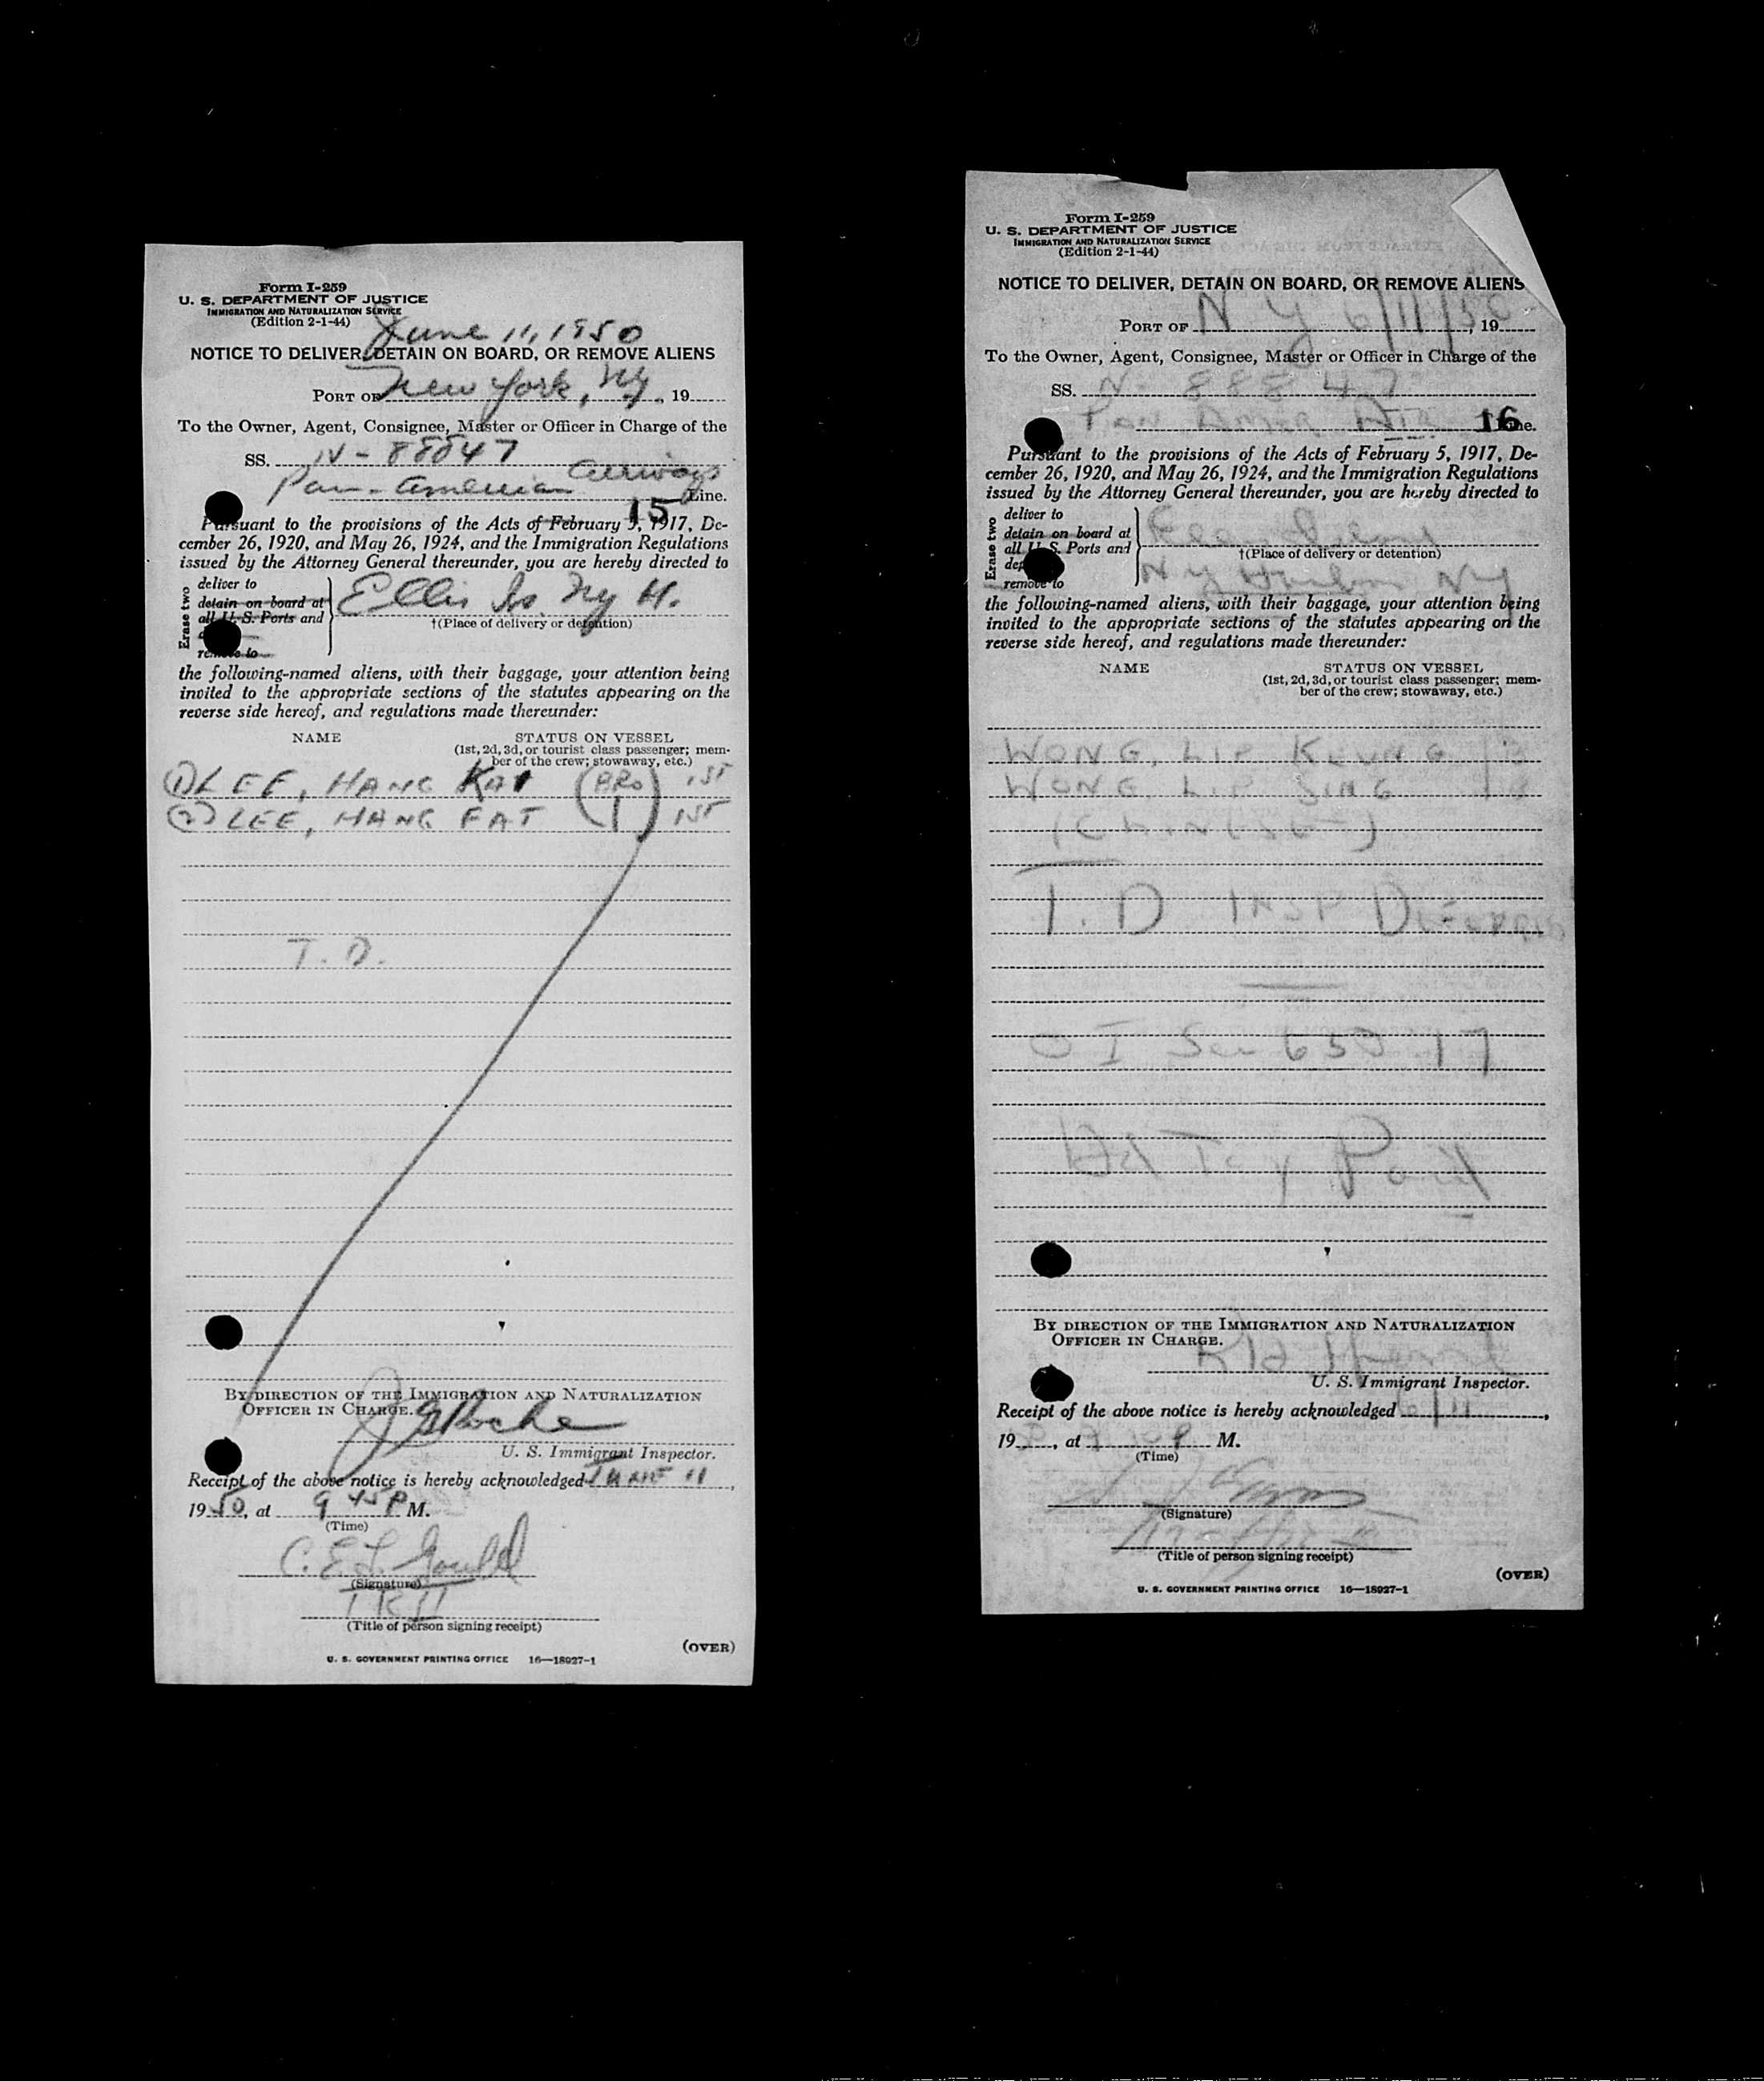 Form I-259
U. S. DEPARTMENT OF JUSTICE
IMMIGRATION AND NATURALIZATION SERVICE
(Edition 2-1-44)
June 11, 1950
NOTICE TO DELIVER, DETAIN ON BOARD, OR REMOVE ALIENS
PORT OF New York, NY, 19
To the Owner, Agent, Consignee, Master or Officer in Charge of the
SS. N-88847
Pan-American Airways Line.
15
Pursuant to the provisions of the Acts of February 5, 1917, De-
cember 26, 1920, and May 26, 1924, and the Immigration Regulations
issued by the Attorney General thereunder, you are hereby directed to
Erase two
deliver to
detain on board at
all U. S. Ports and
remove to
Ellis Is. NY H.
†(Place of delivery or detention)
the following-named aliens, with their baggage, your attention being
invited to the appropriate sections of the statutes appearing on the
reverse side hereof, and regulations made thereunder:
NAME STATUS ON VESSEL
(1st, 2d, 3d, or tourist class passenger; mem-
ber of the crew; stowaway, etc.)
(1) LEE, HANG KAI (BRO) 1ST
(2) LEE, HANG FAT 1ST
T. D.
BY DIRECTION OF THE IMMIGRATION AND NATURALIZATION
OFFICER IN CHARGE.
Roche
U. S. Immigrant Inspector.
Receipt of the above notice is hereby acknowledged JUNE 11,
1950, at 9 45 P M.
(Time)
C. E. L. Gould
(Signature)
(Title of person signing receipt)
(OVER)
U. S. GOVERNMENT PRINTING OFFICE 16—18027-1
Form I-259
U. S. DEPARTMENT OF JUSTICE
IMMIGRATION AND NATURALIZATION SERVICE
(Edition 2-1-44)
NOTICE TO DELIVER, DETAIN ON BOARD, OR REMOVE ALIENS
PORT OF N Y 6/11/50, 19
To the Owner, Agent, Consignee, Master or Officer in Charge of the
SS. N- 88847
Pan Amer Air Line.
16
Pursuant to the provisions of the Acts of February 5, 1917, De-
cember 26, 1920, and May 26, 1924, and the Immigration Regulations
issued by the Attorney General thereunder, you are hereby directed to
Erase two
deliver to
detain on board at
all U. S. Ports and
remove to
Ellis Island
†(Place of delivery or detention)
N Y Harbor NY
the following-named aliens, with their baggage, your attention being
invited to the appropriate sections of the statutes appearing on the
reverse side hereof, and regulations made thereunder:
NAME STATUS ON VESSEL
(1st, 2d, 3d, or tourist class passenger; mem-
ber of the crew; stowaway, etc.)
WONG, LIP KEUNG
WONG, LIP SING
(CHINESE)
T. D INSP DEFERRED
O I Sec 17
Hd Tax Paid
BY DIRECTION OF THE IMMIGRATION AND NATURALIZATION
OFFICER IN CHARGE.
U. S. Immigrant Inspector.
Receipt of the above notice is hereby acknowledged 6/11,
19, at M.
(Time)
(Signature)
(Title of person signing receipt)
(OVER)
U. S. GOVERNMENT PRINTING OFFICE 16—18027-1